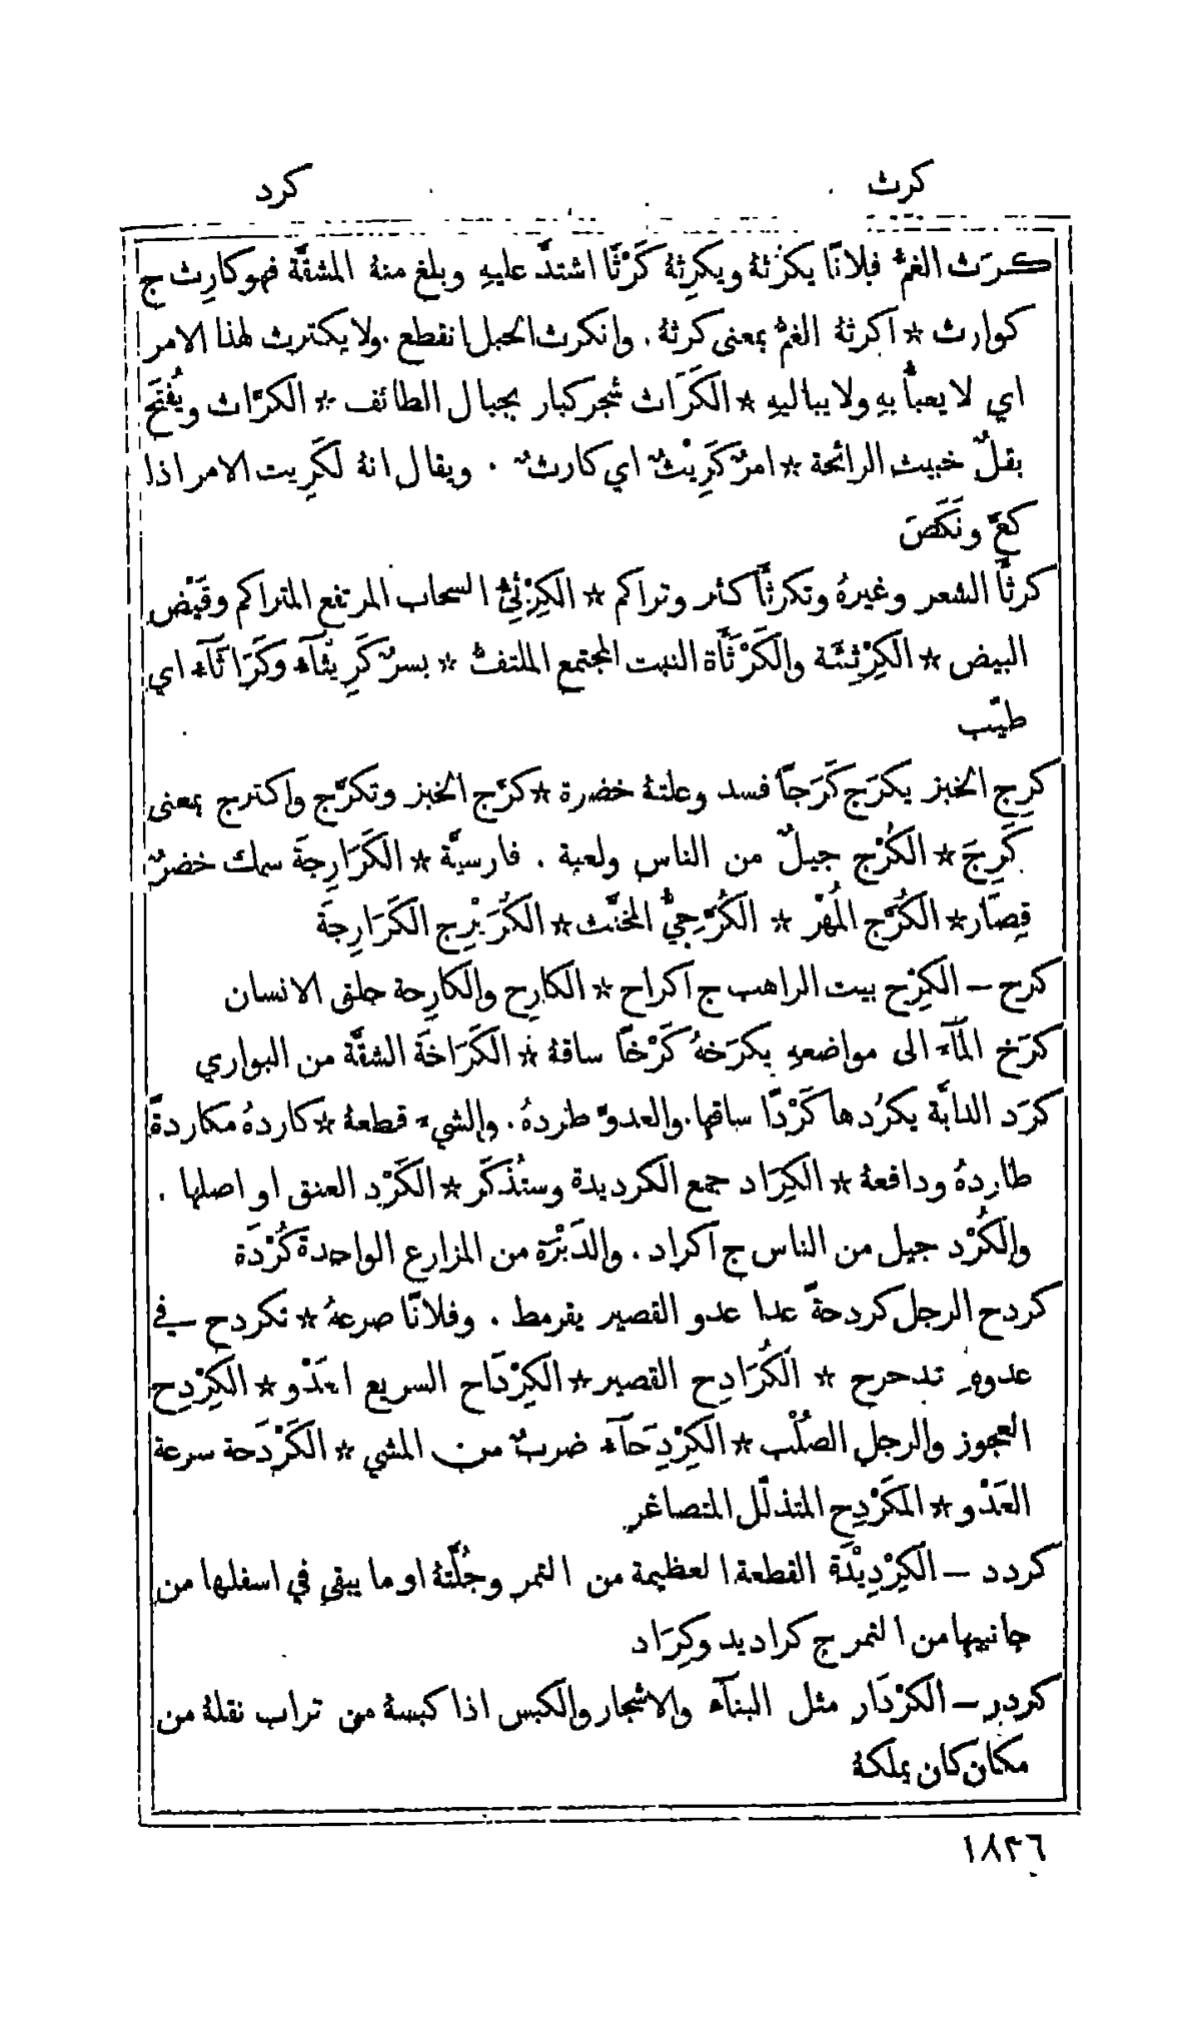 كرث
كرد
كرَث الغمُّ فلانًا يكرُثهُ ويكرِثهُ كَرْثًا اشتدَّ عليهِ وبلغ منهُ المشقَّة فهو كارِث ج
كوارث * اكرثهُ الغمُّ بمعنى كرثهُ . وانكرث الحبل انقطع . ولا يكترث لهذا الامر
اي لا يعبأُ بهِ ولا يباليهِ * الكَرَاث شجر كبار بجبال الطائف * الكرَّاث ويُفتَح
بقلٌ خبيث الرائحة * امرٌ كَرِيْثٌ اي كارثٌ . ويقال انهُ لكَرِيت الامر اذا
كعَّ ونَكَصَ
كرثأَ الشعر وغيرهُ وتكرثأَ كثر وتراكم * الكِرْثِئُ السحاب المرتفع المتراكم وقَيْض
البيض * الكِرْثِئَة والكَرْثَأَة النبت المجتمع الملتفُّ * بسرٌ كَرِيثآء وكَرَاثآء اي
طيّب
كرِج الخبز يكرَج كَرَجًا فسد وعلتهُ خضرة * كرَّج الخبز وتكرَّج واكترج بمعنى
كَرِجَ * الكُرْج جيلٌ من الناس ولعبة . فارسيَّة * الكَرَارِجة سمك خضرٌ
قِصَار * الكُرَّج المُهْر * الكُرَّجيُّ المخنَّث * الكُرَيْرِج الكَرَارِجة
كرح – الكِرْح بيت الراهب ج اكراح * الكارِح والكارِحة حلق الانسان
كرَخ المآء الى مواضعهِ يكرَخهُ كَرْخًا ساقهُ * الكَرَاخَة الشقَّة من البواري
كرَد الدابَّة يكرُدها كَرْدًا ساقها . والعدوَّ طردهُ . والشيء قطعهُ * كاردهُ مكاردةً
طاردهُ ودافعهُ * الكِرَاد جمع الكرديدة وستُذكَر * الكَرْد العنق او اصلها .
والكُرْد جيل من الناس ج اكراد . والدَبْرَة من المزارع الواحدة كُرْدَة
كردح الرجل كردحةً عدا عدو القصير يقرمط . وفلانًا صرعهُ * تكردح في
عدوهِ تدحرج * الكُرَادِح القصير * الكِرْدَاح السريع العَدْو * الكِرْدِح
العجوز والرجل الصُلْب * الكِرْدِحَآء ضربٌ من المشي * الكَرْدَحة سرعة
العَدْو * المكَرْدِح المتذلّل المتصاغر
كردد – الكِرْدِيْدَة القطعة العظيمة من التمر وجُلَّتهُ او ما يبقى في اسفلها من
جانبيها من التمر ج كراديد وكِرَاد
كردر – الكرْدَار مثل البنآء والاشجار والكبس اذا كبسهُ من تراب نقلهُ من
مكان كان يملكهُ
١٨٣٦